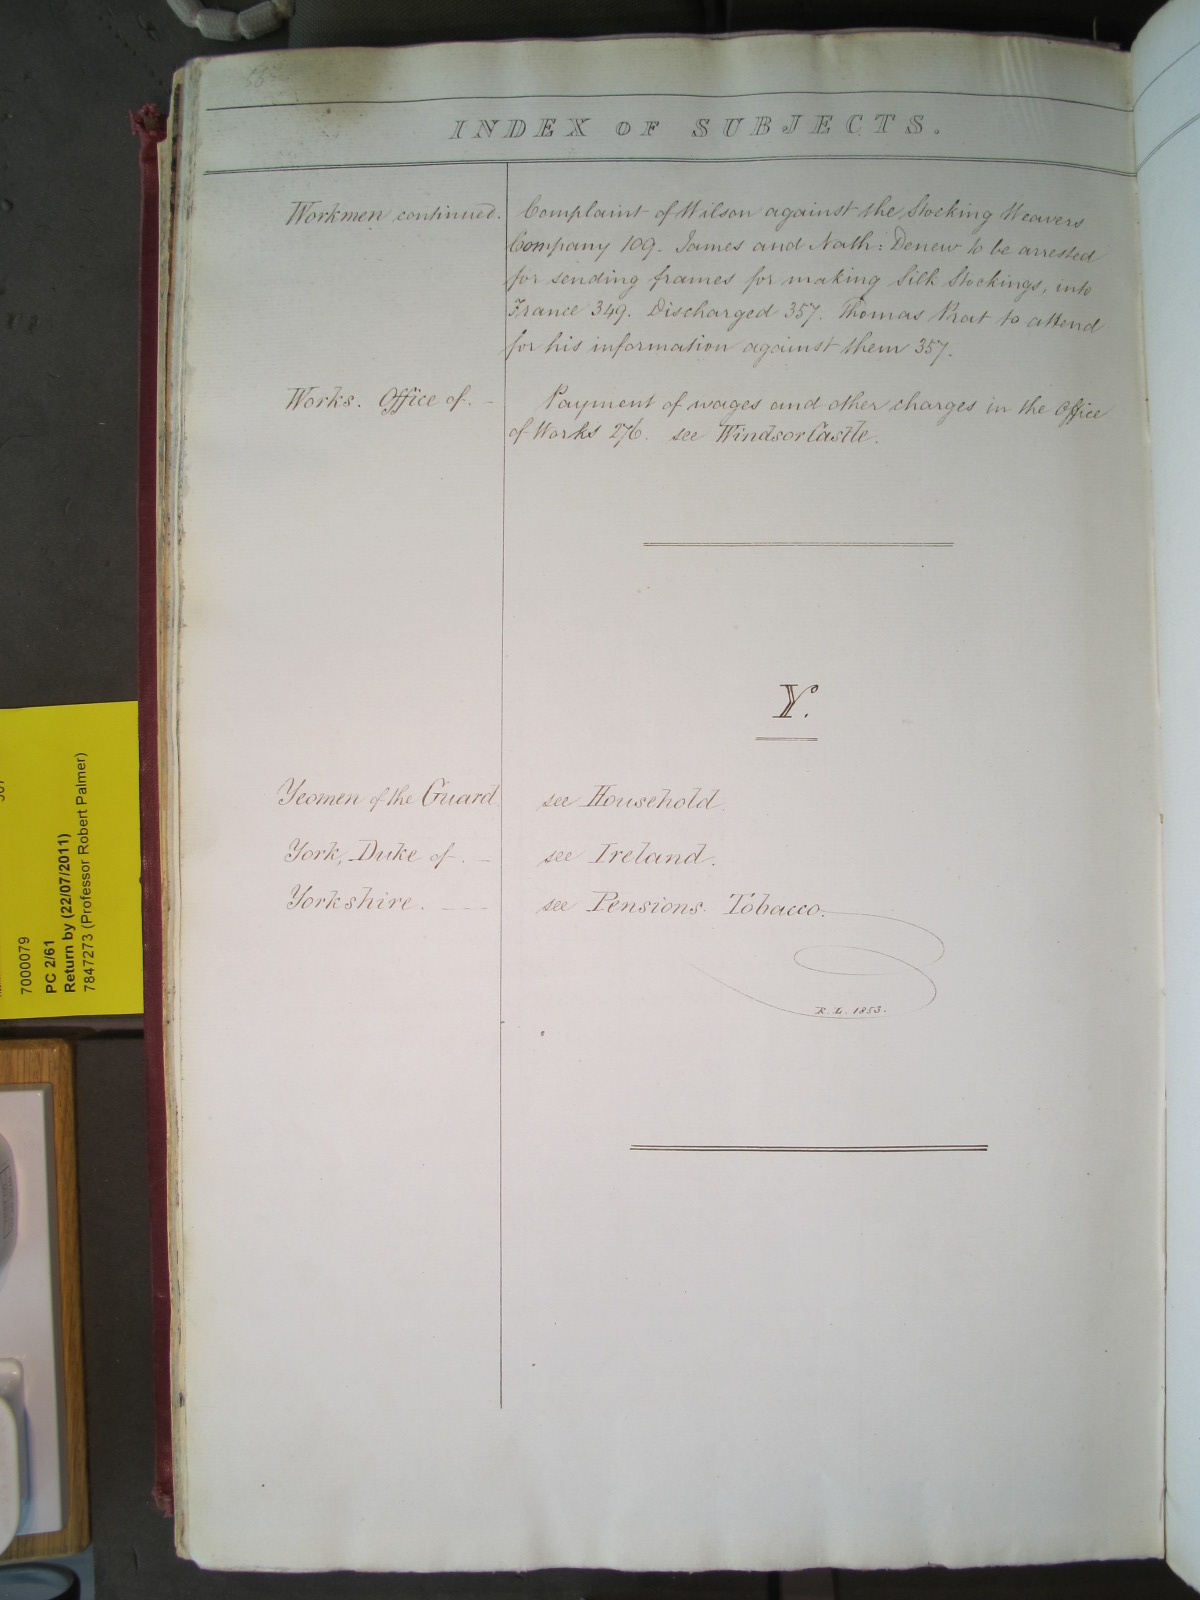 INDEX OF SUBJECTS.
Workmen continued. Complaint of Wilson against the Stocking Weavers
Company 109. James and Nath: Denew to be arrested
for sending frames for making Silk Stockings, into
France 349. Discharged 357. Thomas Prat to attend
for his information against them 357.
Works. Office of. - Payment of wages and other charges in the Office
of Works 276. see Windsor Castle.
Y.
Yeomen of the Guard see Household.
York, Duke of. - see Ireland.
Yorkshire. - see Pensions. Tobacco.
R. L. 1853.
7000079
PC 2/61
Return by (22/07/2011)
7847273 (Professor Robert Palmer)